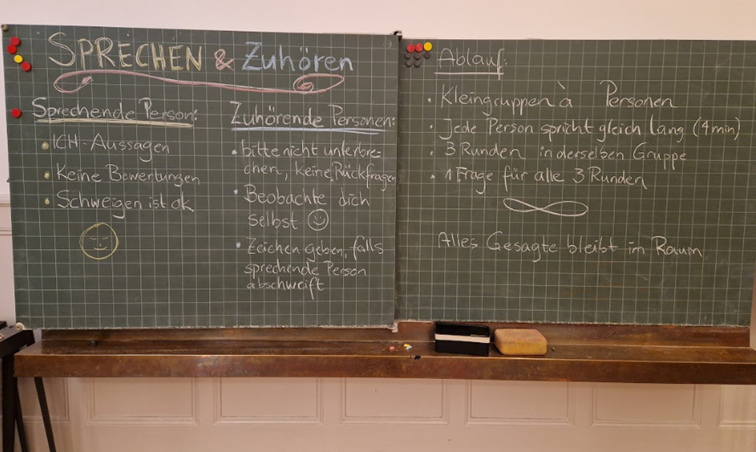 SPRECHEN & Zuhören
Sprechende Person:
• ICH-Aussagen
• Keine Bewertungen
• Schweigen ist ok
Zuhörende Personen:
• bitte nicht unterbre-
chen, keine Rückfragen
• Beobachte dich
selbst ☺
• Zeichen geben, falls
sprechende Person
abschweift
Ablauf:
• Kleingruppen à Personen
• Jede Person spricht gleich lang (4min)
• 3 Runden in derselben Gruppe
• 1 Frage für alle 3 Runden
Alles Gesagte bleibt im Raum